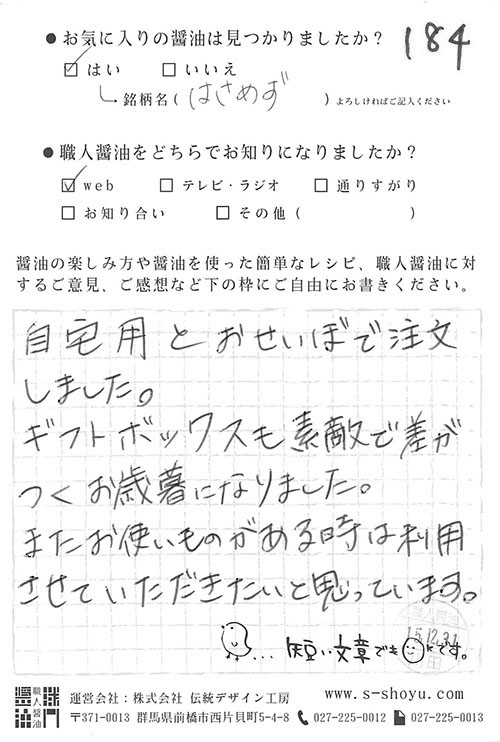 ● お気に入りの醤油は見つかりましたか？ 184
☑ はい □ いいえ
銘柄名( はさめず ) よろしければご記入ください
● 職人醤油をどちらでお知りになりましたか？
☑ web □ テレビ・ラジオ □ 通りすがり
□ お知り合い □ その他 ( )
醤油の楽しみ方や醤油を使った簡単なレシピ、職人醤油に対
するご意見、ご感想など下の枠にご自由にお書きください。
自宅用とおせいぼで注文
しました。
ギフトボックスも素敵で差が
つくお歳暮になりました。
またお使いものがある時は利用
させていただきたいと思っています。
15.12.31
... 短い文章でもOKです。
職人醤油
運営会社：株式会社 伝統デザイン工房 www.s-shoyu.com
〒371-0013 群馬県前橋市西片貝町5-4-8 027-225-0012 027-225-0013